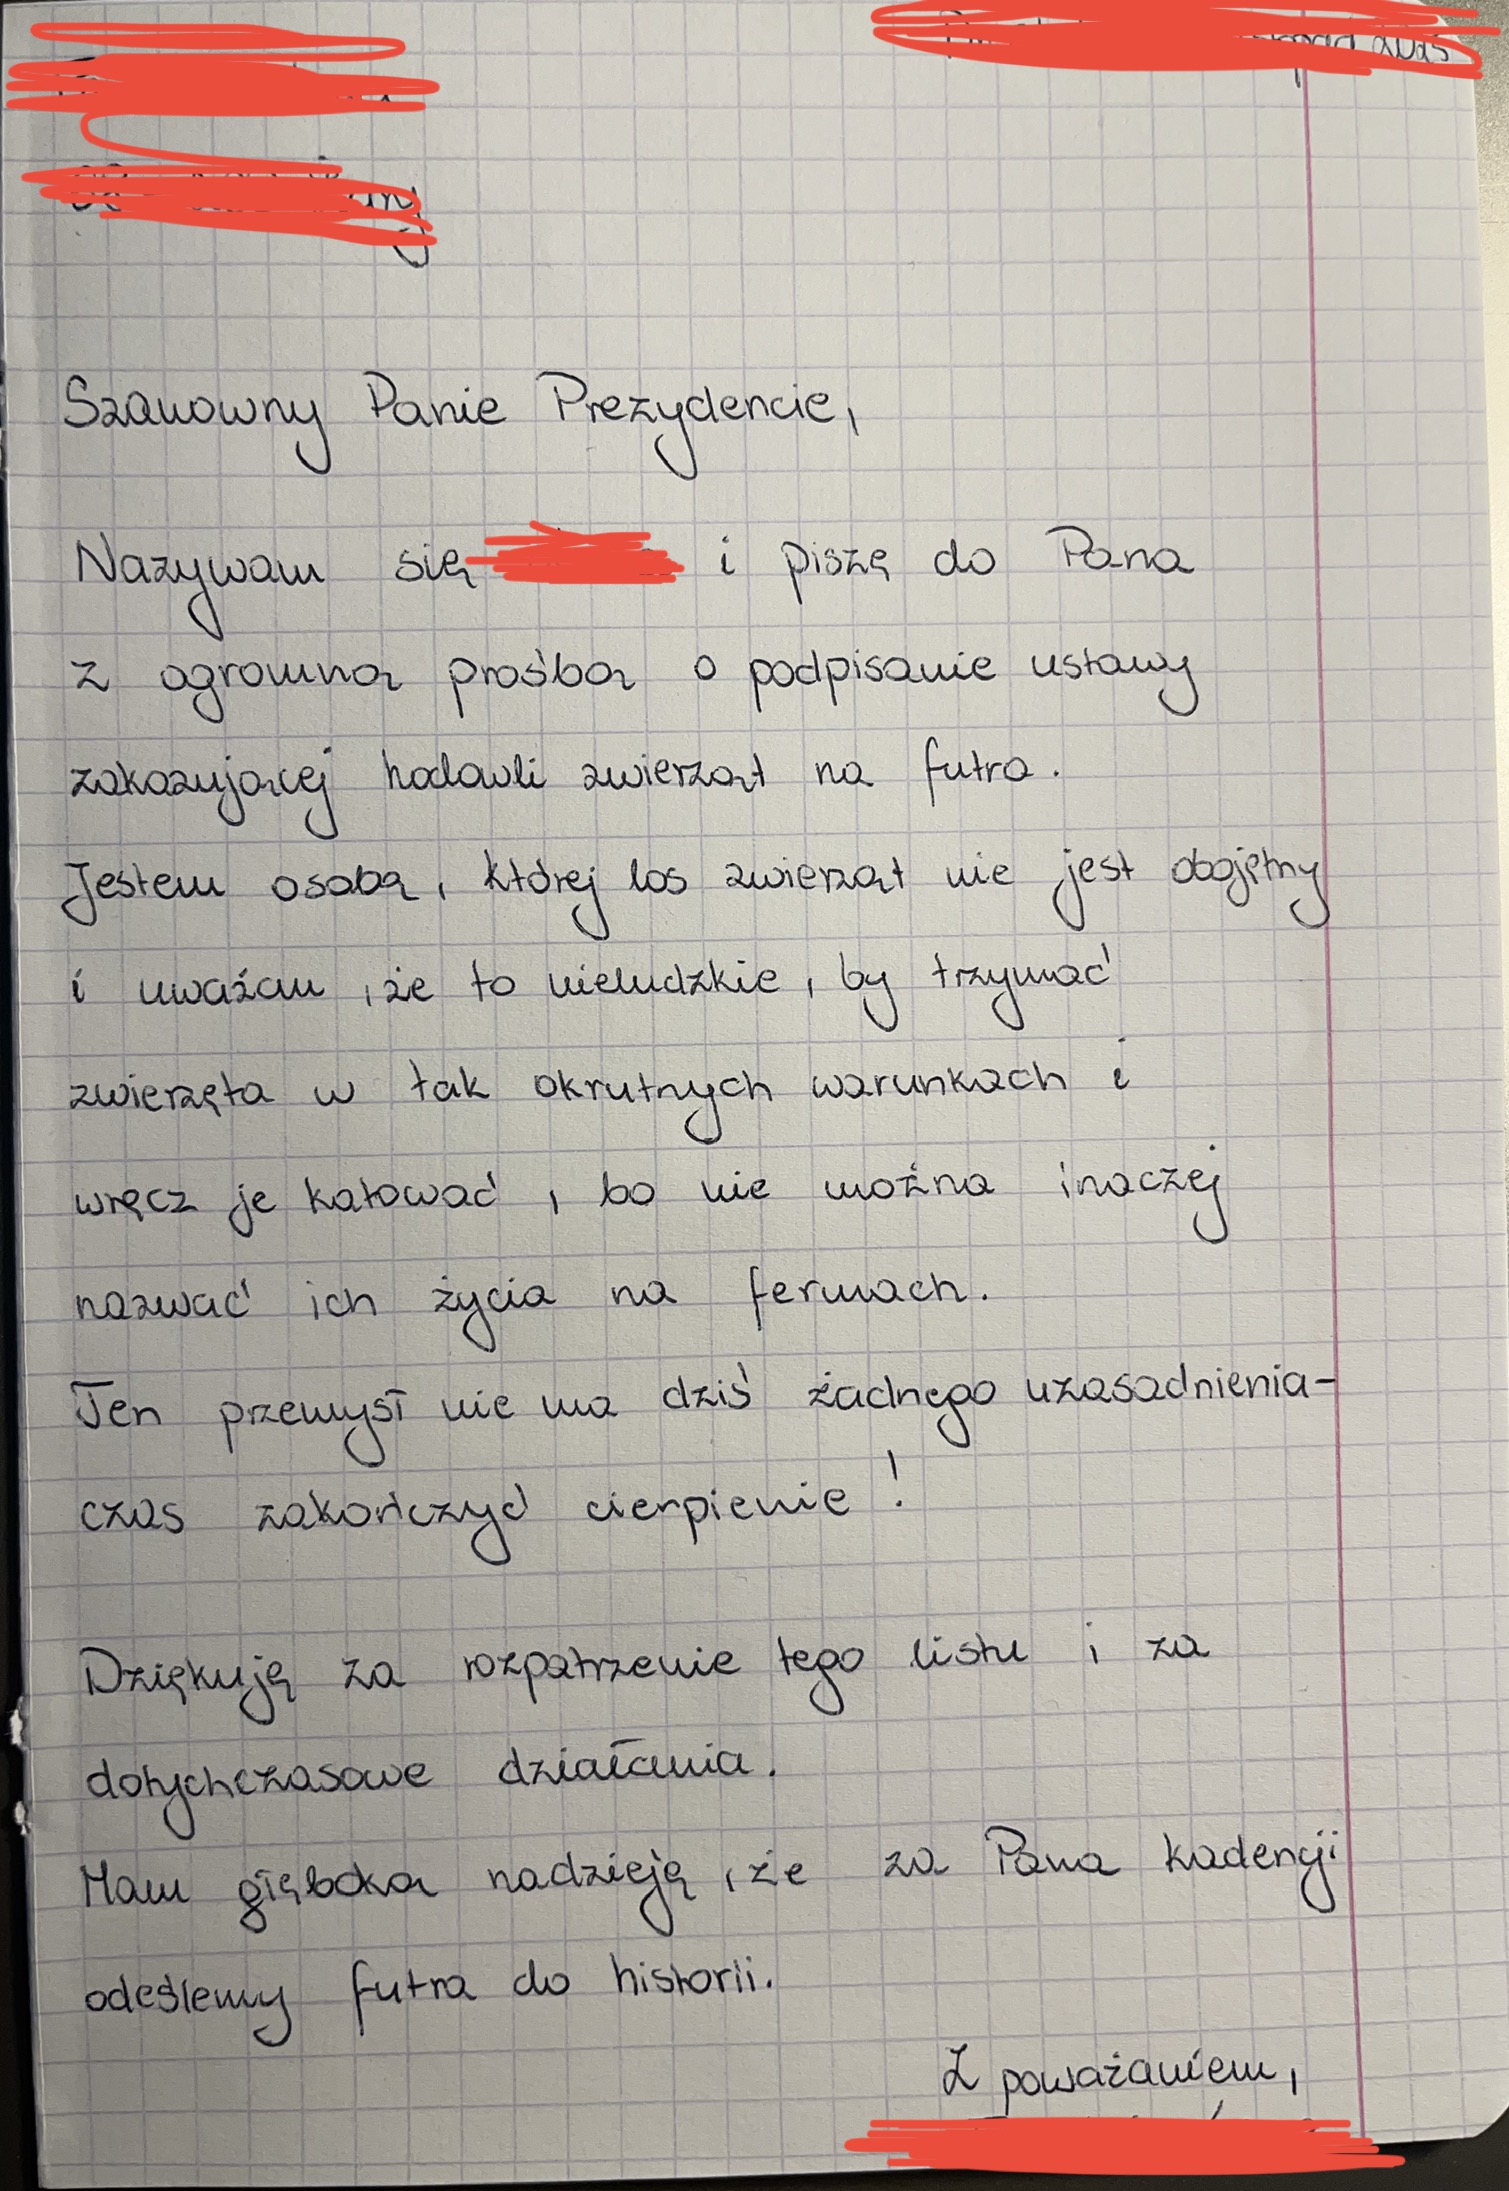 Szanowny Panie Prezydencie,
Nazywam się i piszę do Pana
z ogromną prośbą o podpisanie ustawy
zakazującej hodowli zwierząt na futra.
Jestem osobą, której los zwierząt nie jest obojętny
i uważam, że to nieludzkie, by trzymać
zwierzęta w tak okrutnych warunkach i
wręcz je katować, bo nie można inaczej
nazwać ich życia na fermach.
Ten przemysł nie ma dziś żadnego uzasadnienia-
czas zakończyć cierpienie!
Dziękuję za rozpatrzenie tego listu i za
dotychczasowe działania.
Mam głęboką nadzieję, że za Pana kadencji
odeślemy futra do historii.
Z poważaniem,